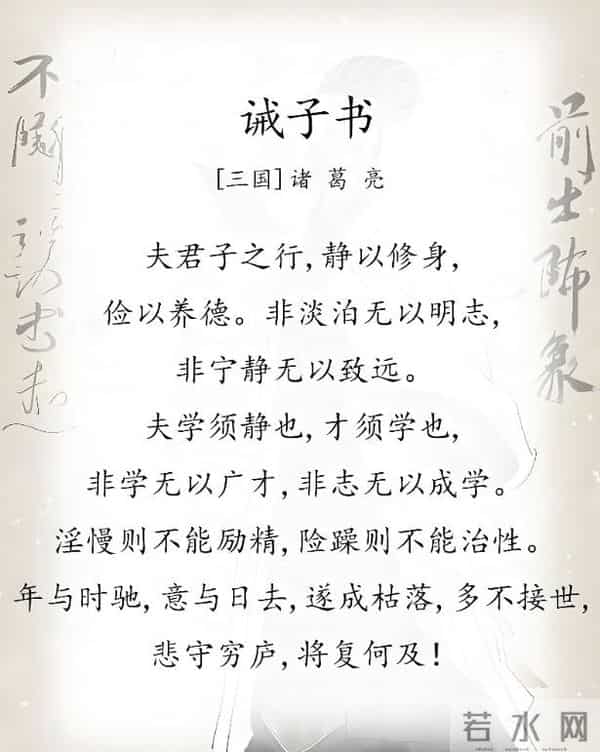 诫子书
[三国]诸 葛 亮
夫君子之行,静以修身,
俭以养德。非淡泊无以明志,
非宁静无以致远。
夫学须静也,才须学也,
非学无以广才,非志无以成学。
淫慢则不能励精,险躁则不能治性。
年与时驰,意与日去,遂成枯落,多不接世,
悲守穷庐,将复何及!
若水网